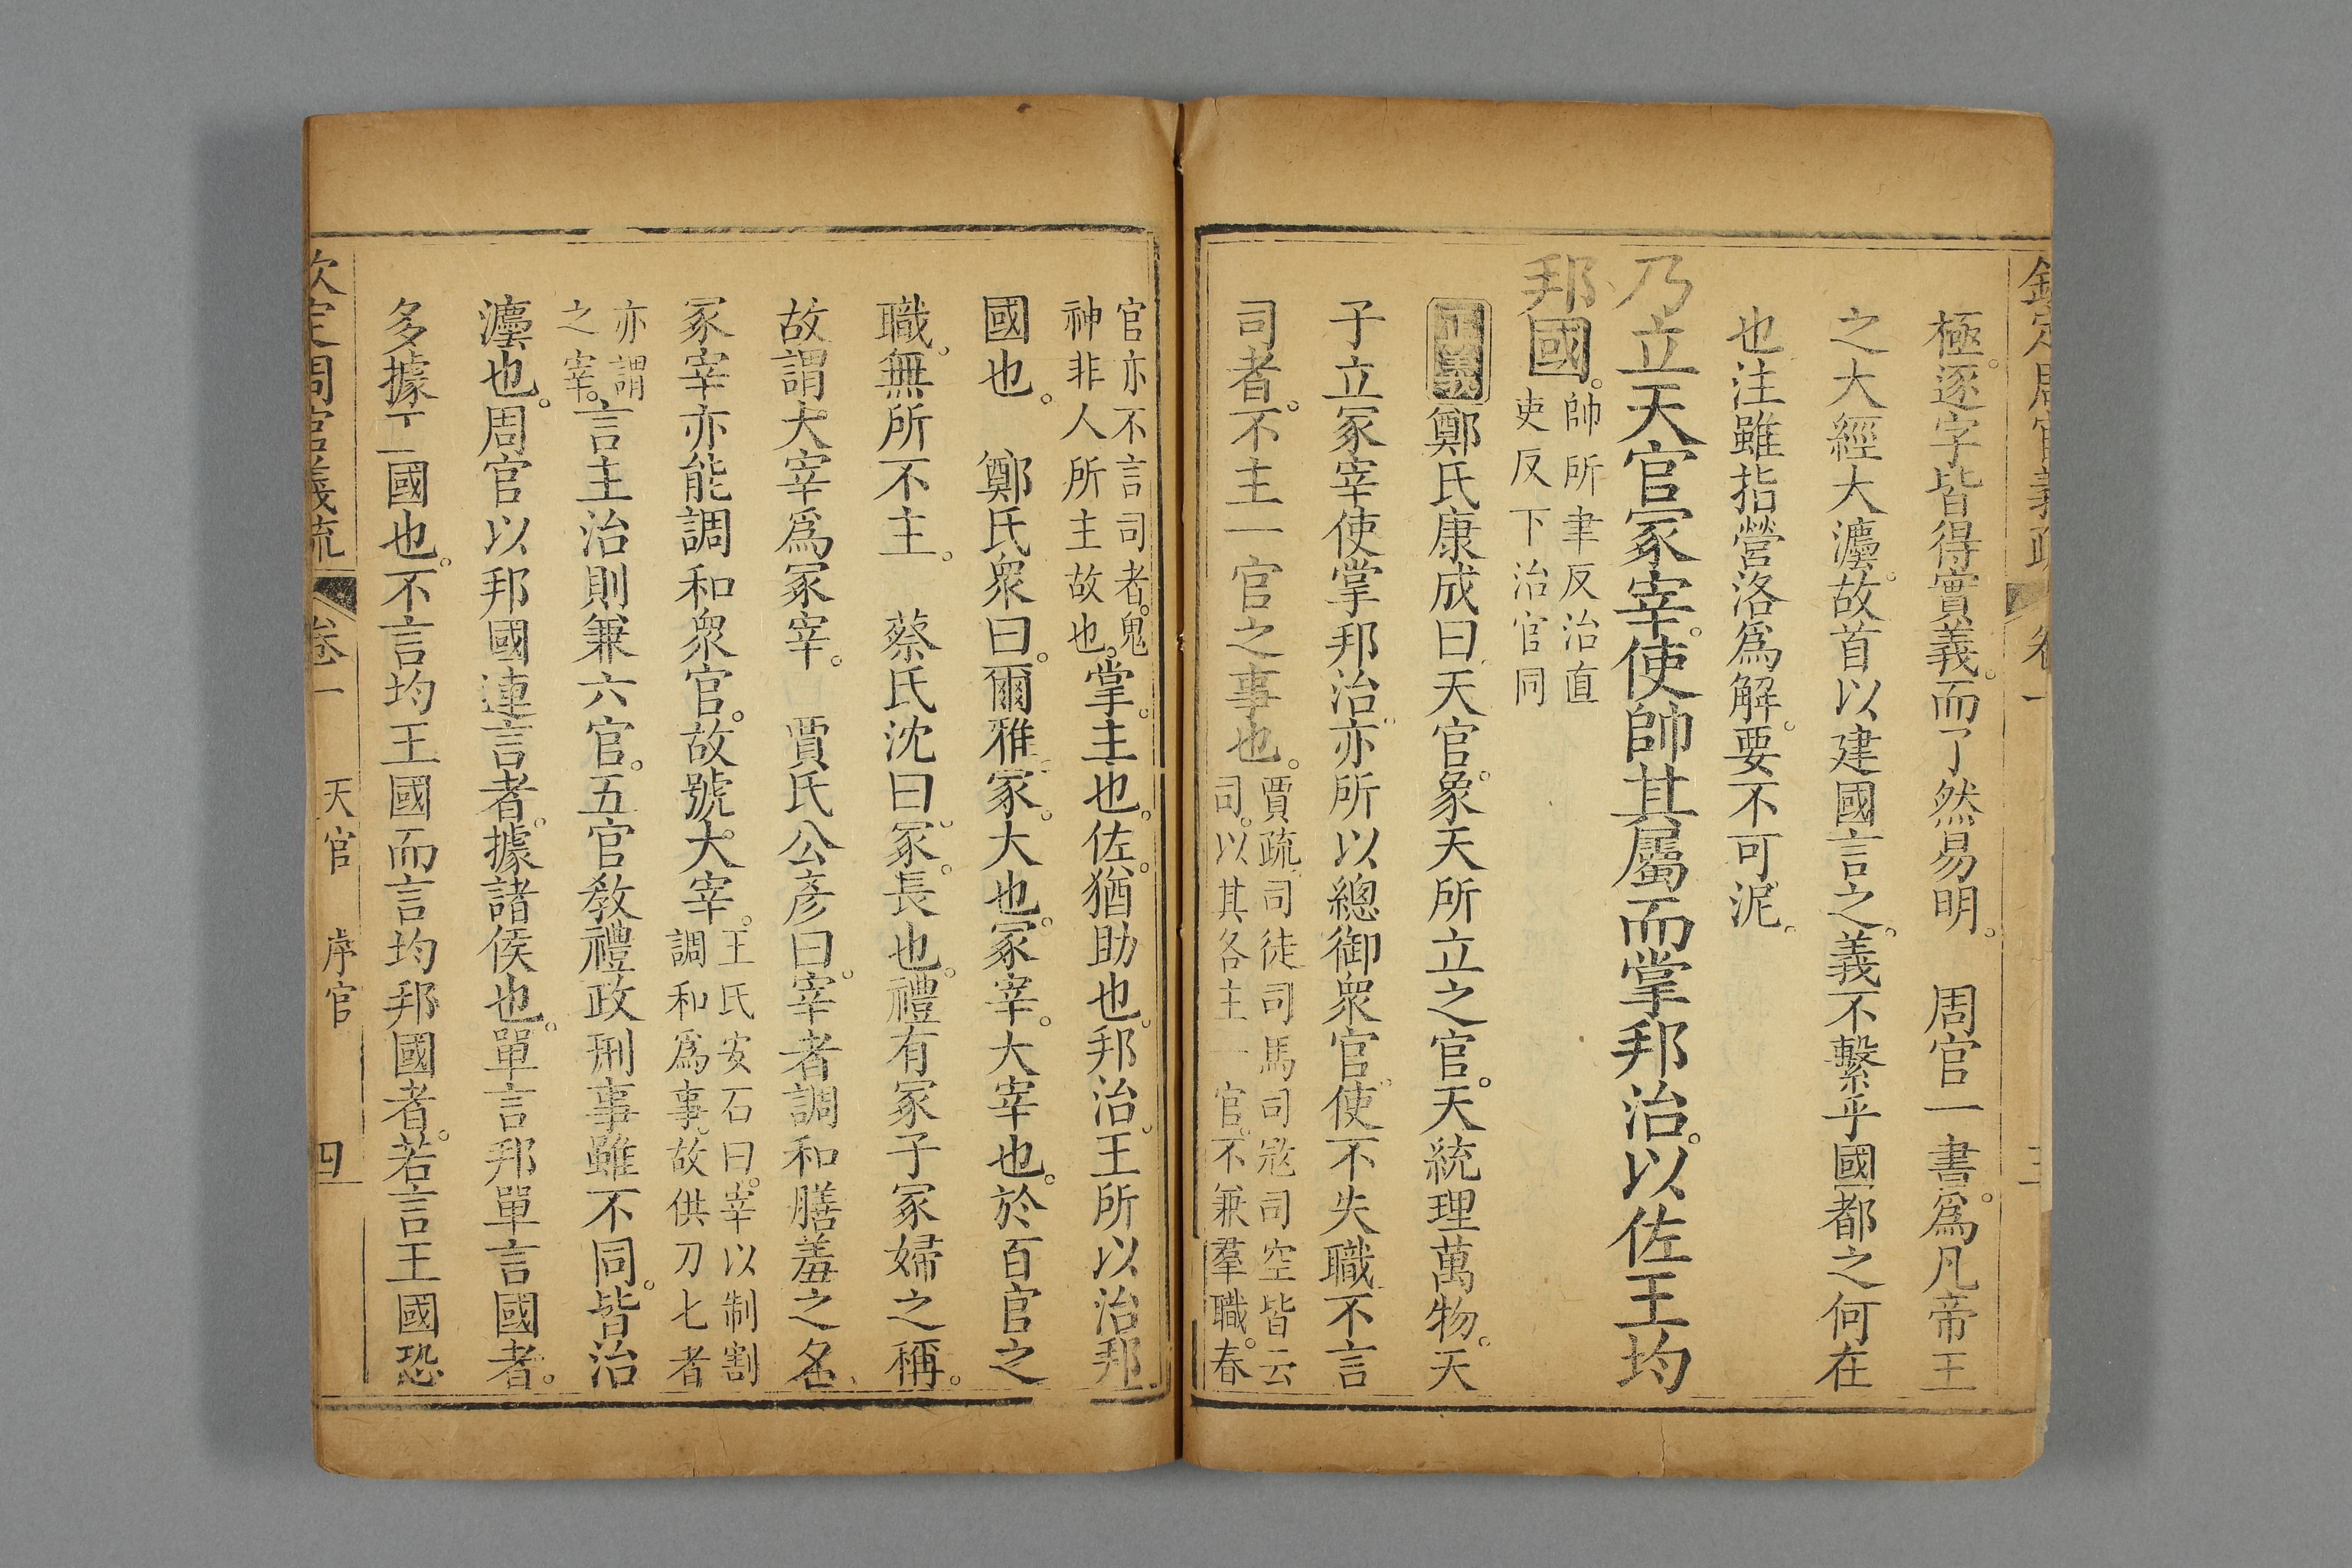 欽定周官義疏 卷一 三
極。逐字皆得實義。而了然易明。 周官一書。爲凡帝王
之大經大灋。故首以建國言之。義不繫乎國都之何在
也注雖指營洛爲解。要不可泥。
乃立天官冢宰。使帥其屬而掌邦治。以佐王均
邦國。帥所聿反治直
吏反下治官同
正義鄭氏康成曰天官。象天所立之官。天統理萬物。天
子立冢宰使掌邦治。亦所以總御眾官。使不失職不言
司者。不主一官之事也。賈疏。司徒司馬司寇司空皆云
司。以其各主一官。不兼羣職。春
官亦不言司者。鬼
神非人所主故也。掌。主也。佐。猶助也。邦治。王所以治邦
國也。 鄭氏眾曰。爾雅。冢。大也。冢宰。大宰也。於百官之
職。無所不主。 蔡氏沈曰。冢。長也。禮有冢子冢婦之稱。
故謂大宰爲冢宰。 賈氏公彥曰。宰者調和膳羞之名、
冢宰亦能調和眾官。故號大宰。王氏安石曰。宰以制割
調和爲事。故供刀匕者
亦謂
之宰。言主治則兼六官。五官敎禮政刑事雖不同。皆治
灋也。周官以邦國連言者。據諸侯也。單言邦單言國者。
多據王國也。不言均王國而言均邦國者。若言王國恐
欽定周官義疏 卷一 天官 序官 四